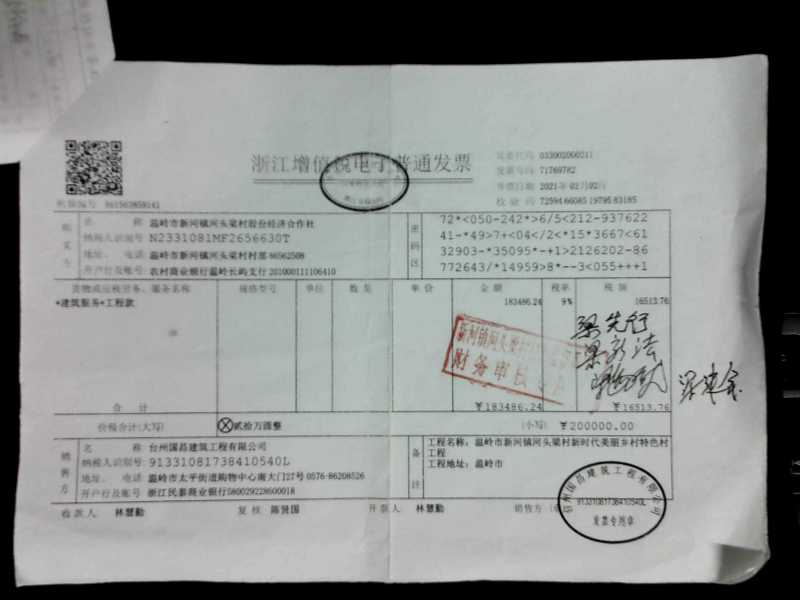 浙江增值税电子普通发票
发票代码 033002000211
发票号码 71769782
开票日期 2021年02月02日
校验码 72594 66085 19795 83185
机器编号 661563859141
购买方
名称 温岭市新河镇河头梁村股份经济合作社
纳税人识别号 N2331081MF2656630T
地址、电话 温岭市新河镇河头梁村村部 86562508
开户行及账号 农村商业银行温岭长屿支行 201000111106410
密码区
72*<050-242*>6/5<212-937622
41-*49>7+<04</2<*15*3667<61
32903-*35095*-+1>2126202-86
772643/*14959>8*--3<055+++1
货物或应税劳务、服务名称 规格型号 单位 数量 单价 金额 税率 税额
*建筑服务*工程款 183486.24 9% 16513.76
财务审核
梁先行
合计 ￥183486.24 ￥16513.76
价税合计(大写) 贰拾万圆整 (小写) ￥200000.00
销售方
名称 台州国昌建筑工程有限公司
纳税人识别号 91331081738410540L
地址、电话 温岭市太平街道购物中心南大门27号 0576-86208526
开户行及账号 浙江民泰商业银行580029228600018
备注
工程名称: 温岭市新河镇河头梁村新时代美丽乡村特色村
工程
工程地址: 温岭市
收款人 林慧勤 复核 陈贤国 开票人 林慧勤 销售方
台州国昌建筑工程有限公司
91331081738410540L
发票专用章